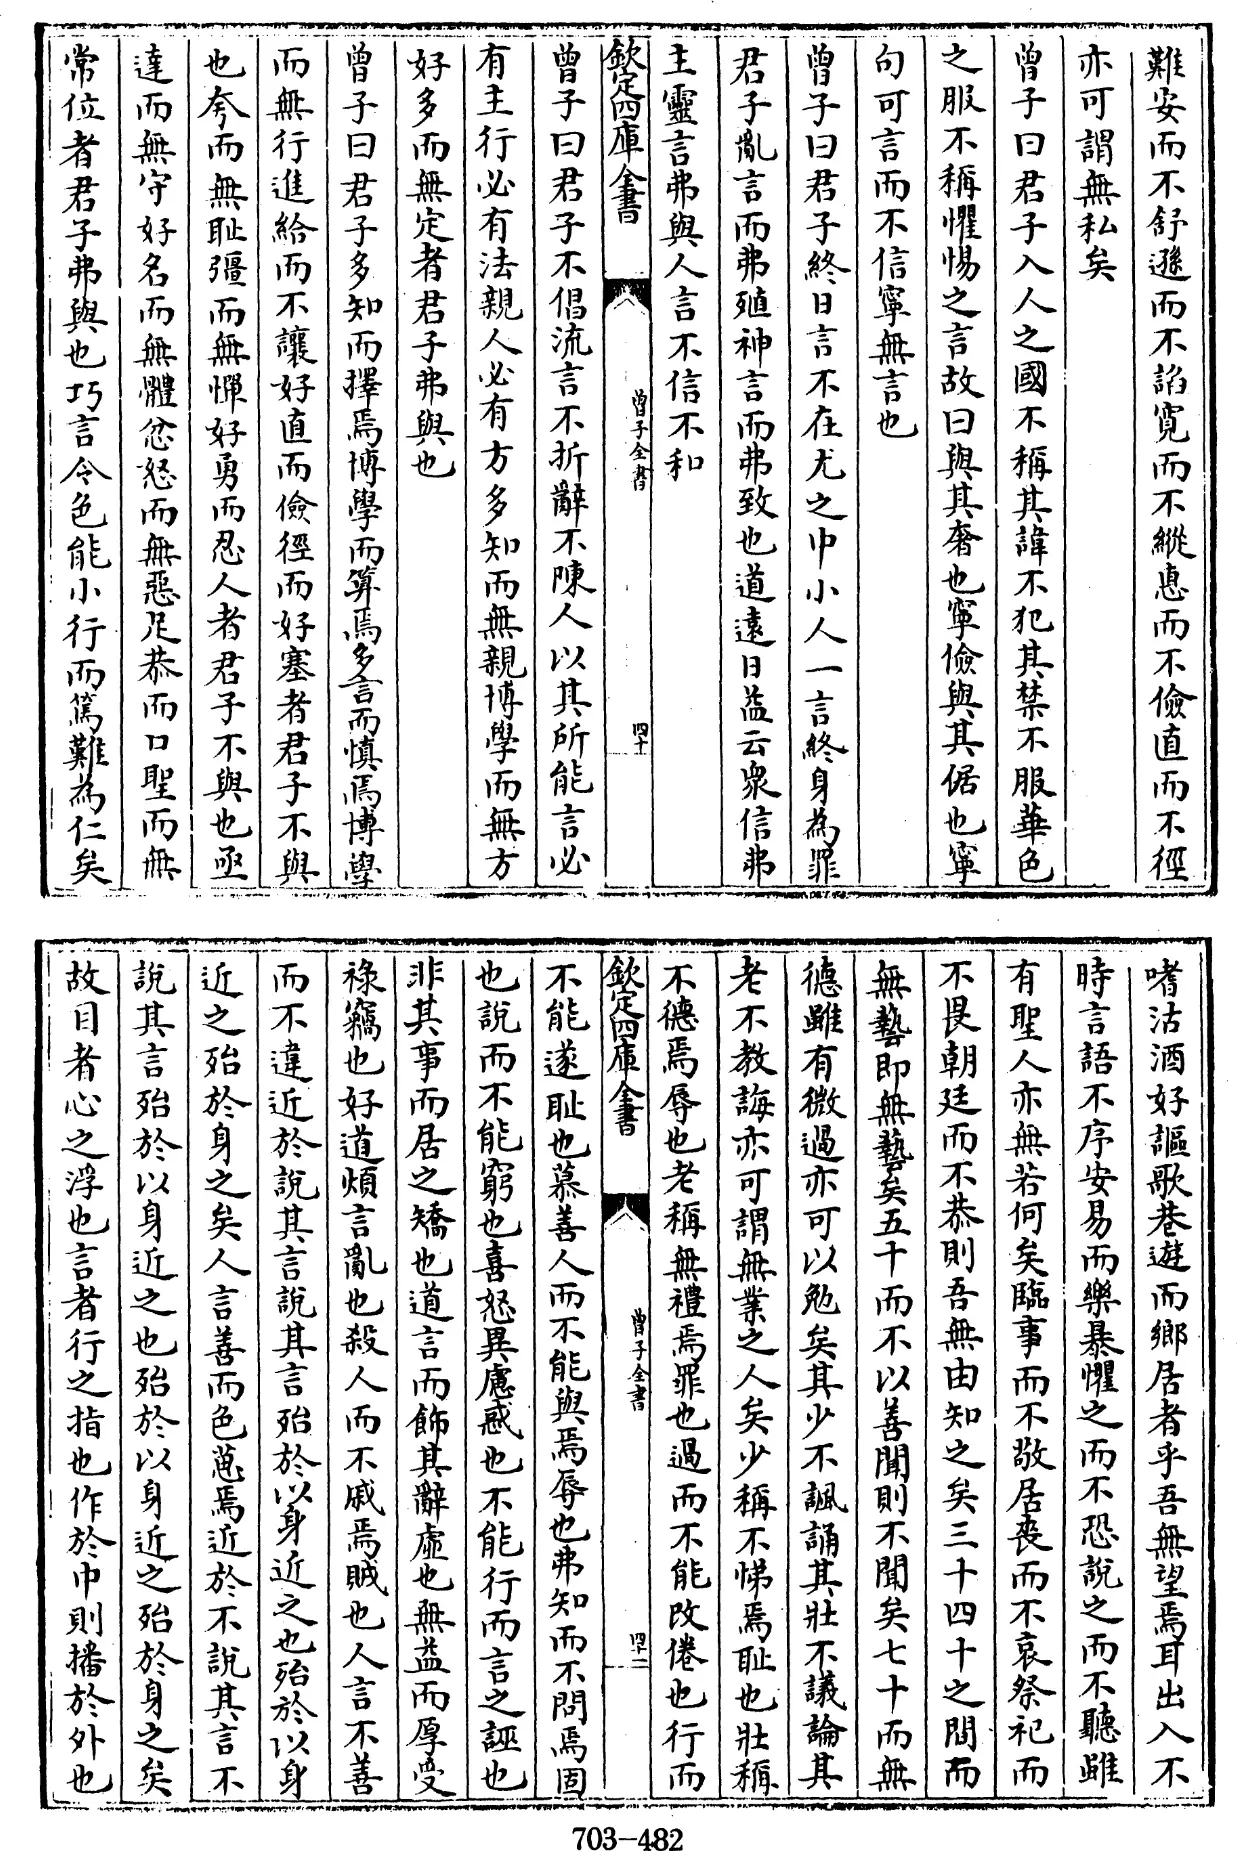 難安而不舒遜而不諂寛而不縱惠而不儉直而不徑
亦可謂無私矣
曾子曰君子入人之國不稱其諱不犯其禁不服華色
之服不稱懼惕之言故曰與其奢也寧儉與其倨也寧
句可言而不信寧無言也
曾子曰君子終日言不在尤之中小人一言終身為罪
君子亂言而弗殖神言而弗致也道逺日益云衆信弗
主靈言弗與人言不信不和
欽定四庫全書
曾子全書
四十
曾子曰君子不倡流言不折辭不陳人以其所能言必
有主行必有法親人必有方多知而無親博學而無方
好多而無定者君子弗與也
曾子曰君子多知而擇焉博學而算焉多言而慎焉博學
而無行進給而不讓好直而儉徑而好塞者君子不與
也夸而無恥彊而無憚好勇而忍人者君子不與也亟
達而無守好名而無體忿怒而無惡足恭而口聖而無
常位者君子弗與也巧言令色能小行而篤難為仁矣
嗜沽酒好謳歌巷遊而鄉居者乎吾無望焉耳出入不
時言語不序安易而樂暴懼之而不恐說之而不聽雖
有聖人亦無若何矣臨事而不敬居喪而不哀祭祀而
不畏朝廷而不恭則吾無由知之矣三十四十之間而
無藝即無藝矣五十而不以善聞則不聞矣七十而無
德雖有微過亦可以勉矣其少不諷誦其壯不議論其
老不教誨亦可謂無業之人矣少稱不悌焉恥也壯稱
不德焉辱也老稱無禮焉罪也過而不能改倦也行而
欽定四庫全書
曾子全書
四十一
不能遂恥也慕善人而不能與焉辱也弗知而不問焉固
也說而不能窮也喜怒異慮惑也不能行而言之誣也
非其事而居之矯也道言而飾其辭虛也無益而厚受
祿竊也好道煩言亂也殺人而不戚焉賊也人言不善
而不違近於說其言說其言殆於以身近之也殆於以身
近之殆於身之矣人言善而色葸焉近於不說其言不
說其言殆於以身近之也殆於以身近之殆於身之矣
故目者心之浮也言者行之指也作於中則播於外也
703-482